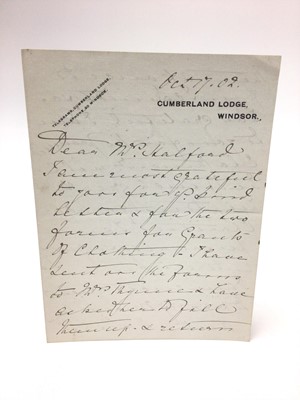 TELEGRAMS, CUMBERLAND LODGE.
TELEPHONE, WINDSOR.
Oct 17. 02.
CUMBERLAND LODGE,
WINDSOR.,
Dear Mrs Halford
I am most grateful
to you for yr kind
letter & for the two
forms for Grants
of Clothing - I have
sent on the forms
to Mrs Thynne & have
asked her to fill
them up & return